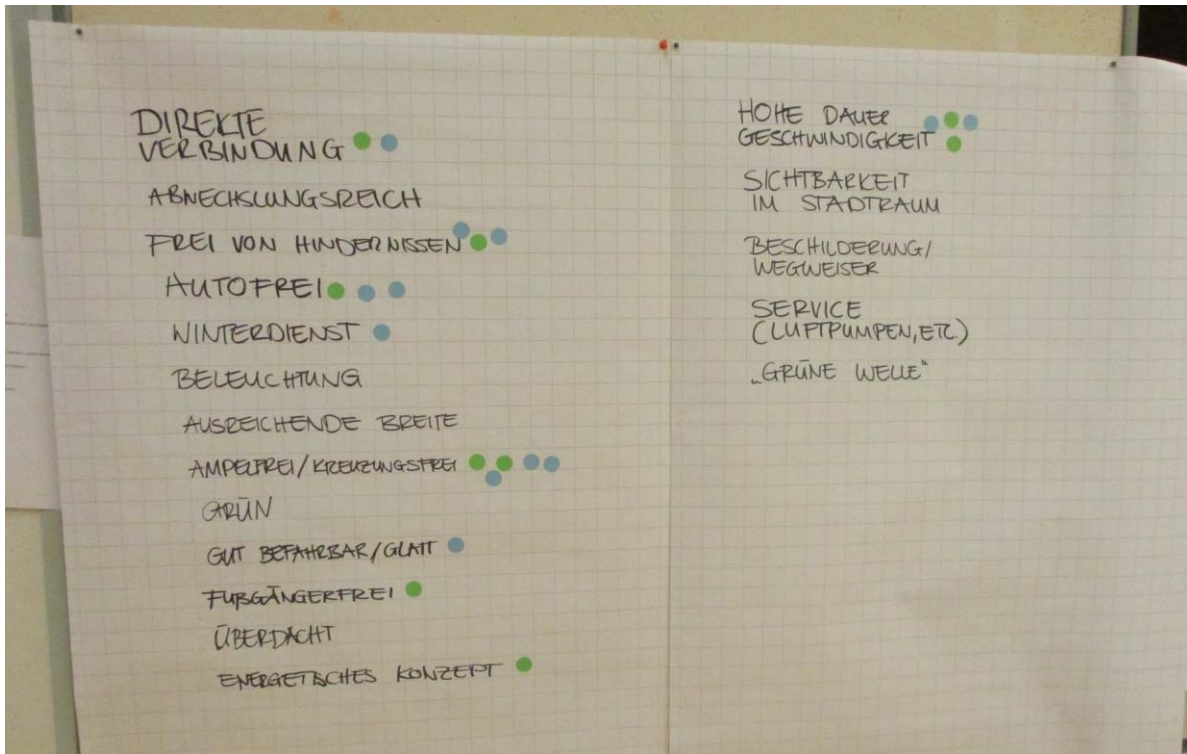 DIREKTE
VERBINDUNG
ABWECHSLUNGSREICH
FREI VON HINDERNISSEN
AUTOFREI
WINTERDIENST
BELEUCHTUNG
AUSREICHENDE BREITE
AMPELFREI/KREUZUNGSFREI
GRÜN
GUT BEFAHRBAR/GLATT
FUßGÄNGERFREI
ÜBERDACHT
ENERGETISCHES KONZEPT
HOHE DAUER
GESCHWINDIGKEIT
SICHTBARKEIT
IM STADTRAUM
BESCHILDERUNG/
WEGWEISER
SERVICE
(LUFTPUMPEN, ETC.)
„GRÜNE WELLE"